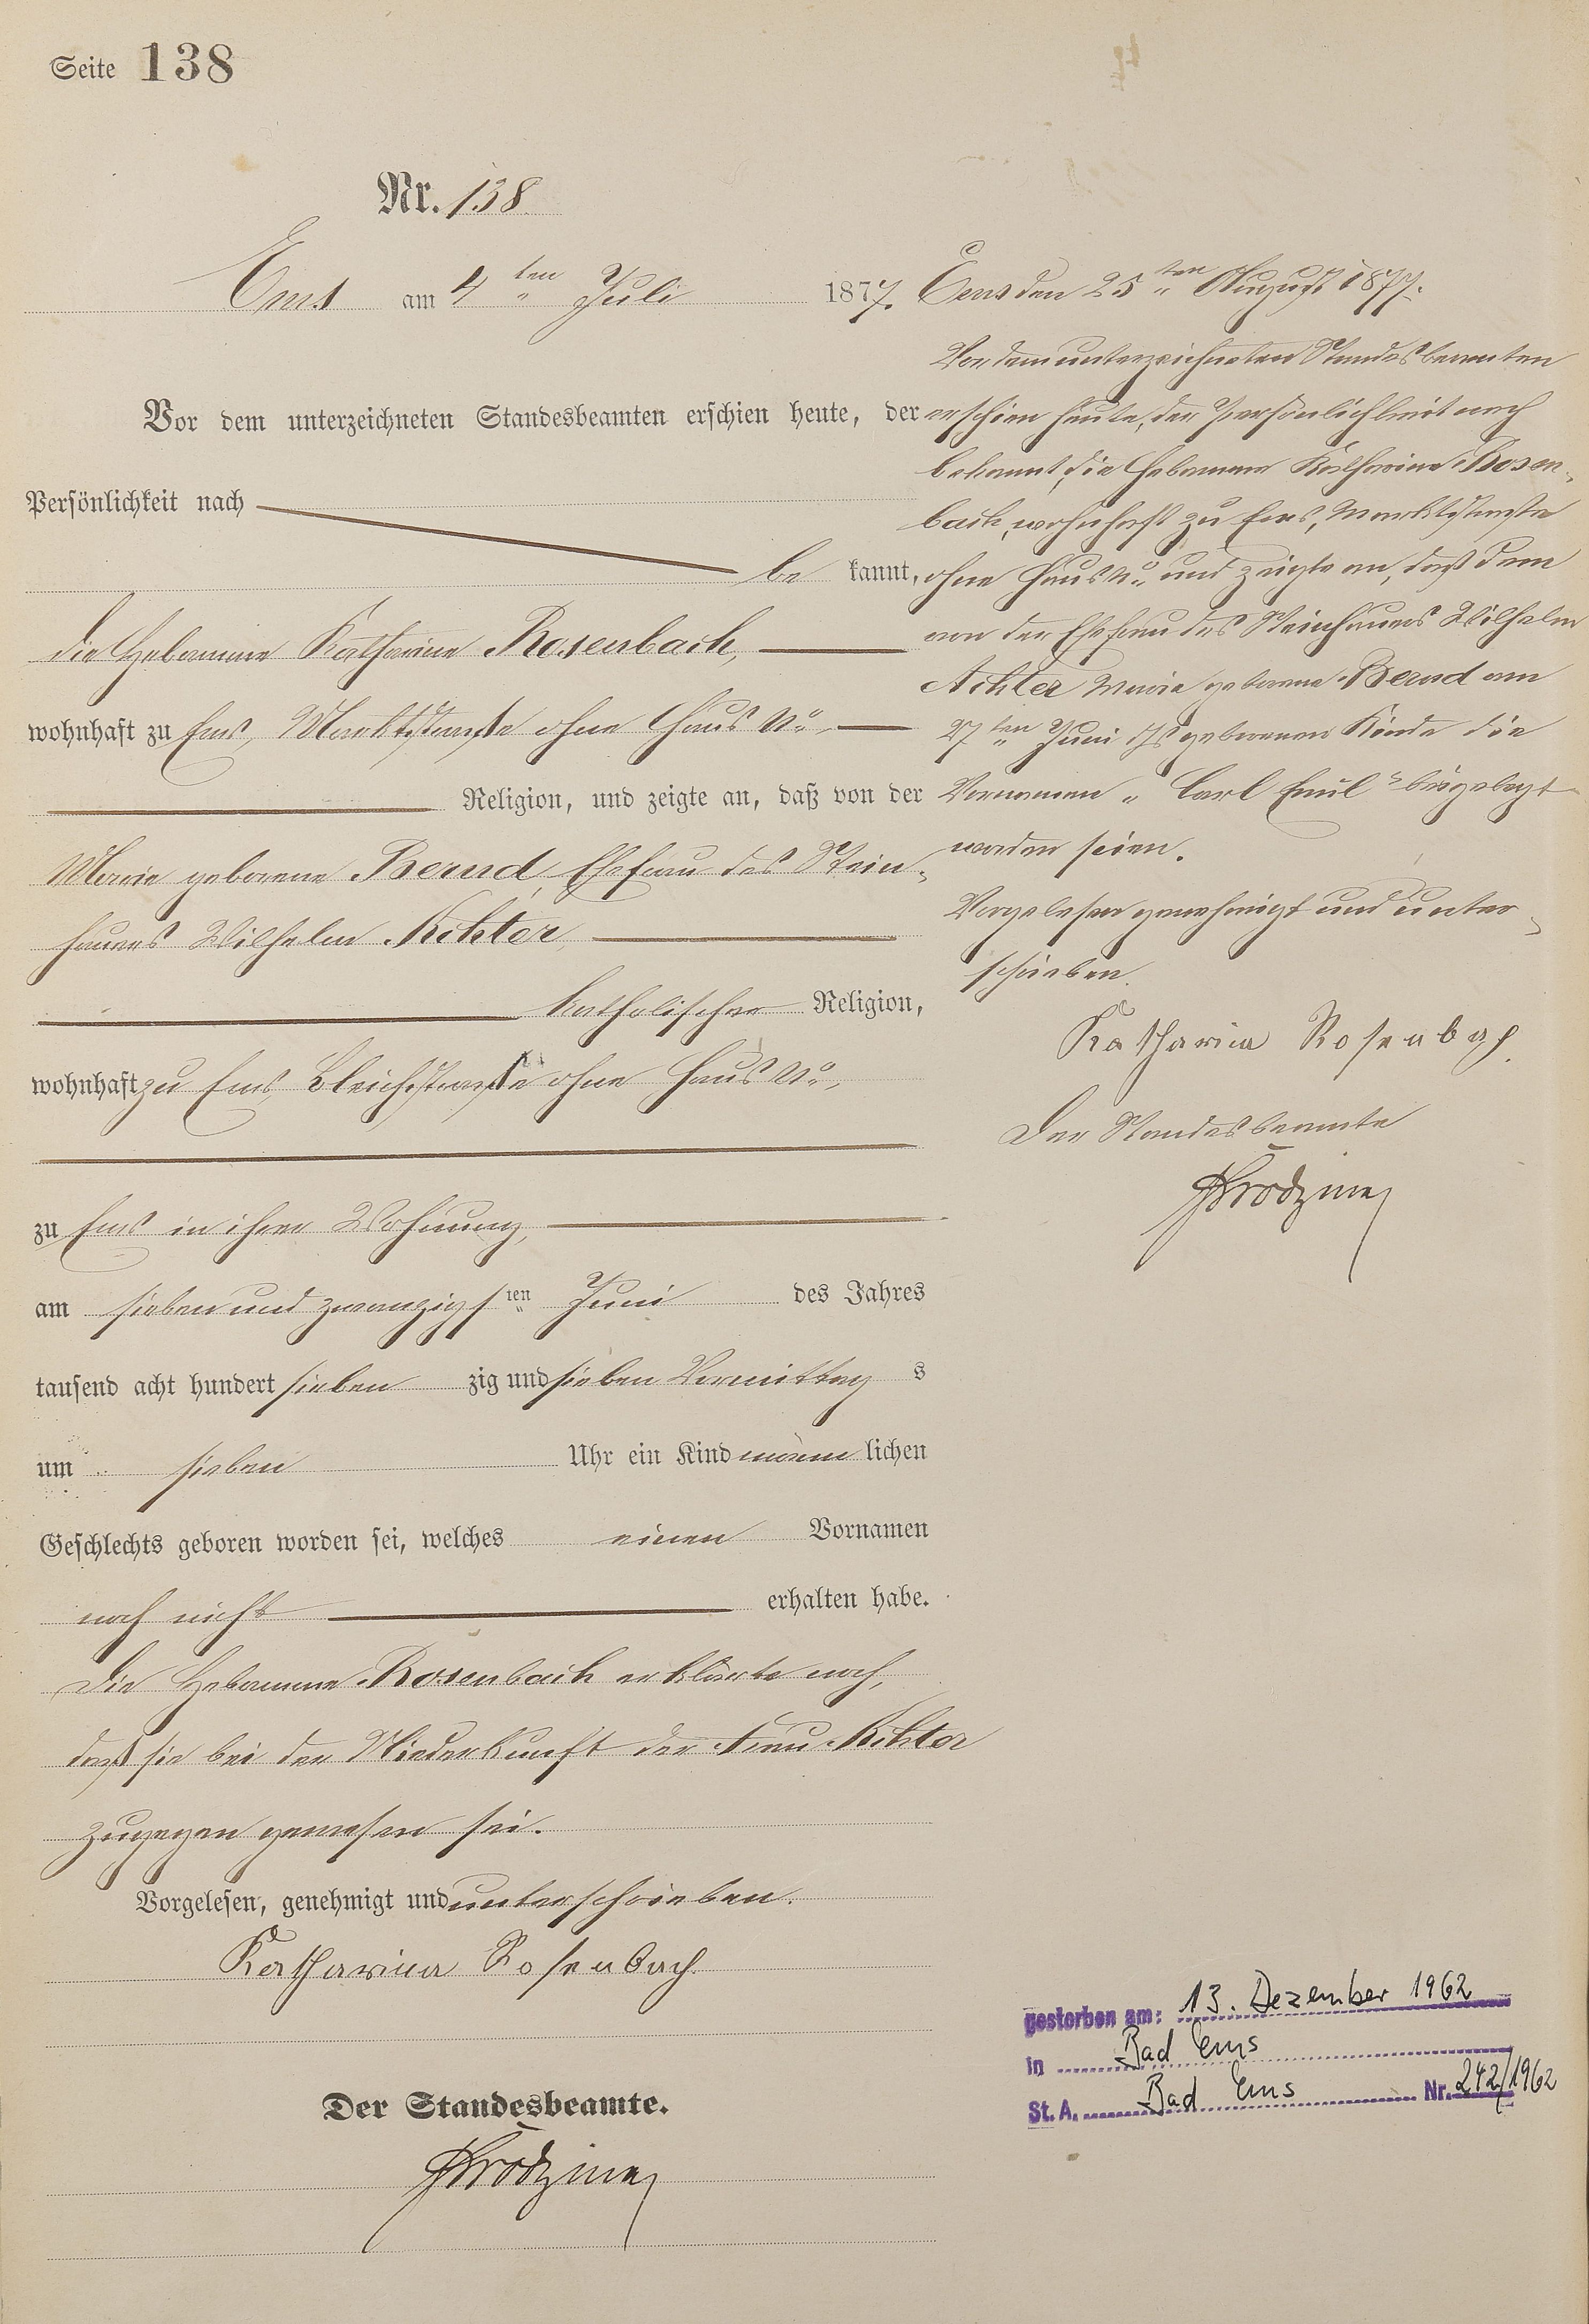 Seite 138
Nr. 138.
Ems am 4 ten Juli 1877.
Vor dem unterzeichneten Standesbeamten erschien heute, der
Persönlichkeit nach
be kannt,
die Hebamme Katharine Rosenbach,
wohnhaft zu Ems, Marktstraße ohne Haus No.,
Religion, und zeigte an, daß von der
Marie geborene Bernd, Ehefrau des Stein-
hauers Wilhelm Achter
katholischer Religion,
wohnhaft zu Ems, Bleichstraße ohne Haus No.,
zu Ems in ihrer Wohnung,
am sieben und zwanzigsten Juni des Jahres
tausend acht hundert sieben zig und sieben Vormittag s
um sieben Uhr ein Kind männ lichen
Geschlechts geboren worden sei, welches einen Vornamen
noch nicht erhalten habe.
Die Hebamme Rosenbach erklärte noch,
daß sie bei der Niederkunft der Frau Achter
zugegen gewesen sei.
Vorgelesen, genehmigt und unterschrieben.
Katharina Rosenbach.
Der Standesbeamte.
Ems den 25 ten August 1877.
Vor dem unterzeichneten Standesbeamten
erschien heute, der Persönlichkeit nach
bekannt, die Hebamme Katharine Rosen-
bach, wohnhaft zu Ems, Marktstraße
ohne Haus No. und zeigte an, daß dem
von der Ehefrau des Steinhauers Wilhelm
Achter Marie geborene Bernd am
27 ten Juni d Js geborenen Kinde die
Vornamen „Carl Emil“ beigelegt
worden seien.
Vorgelesen genehmigt und unter-
schrieben.
Katharina Rosenbach.
Der Standesbeamte
gestorben am: 13. Dezember 1962
in Bad Ems
St. A. Bad Ems Nr. 242/1962